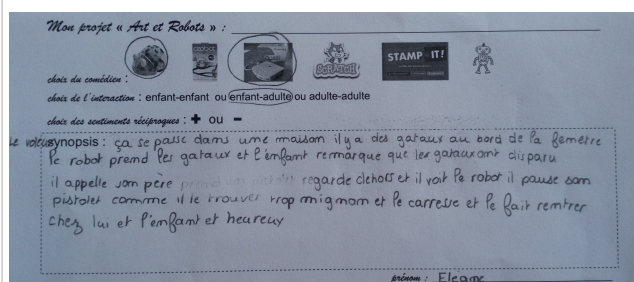 Mon projet « Art et Robots » :
ozobot
SCRATCH
STAMP IT!
choix du comédien :
choix de l'interaction : enfant-enfant ou enfant-adulte ou adulte-adulte
choix des sentiments réciproques : + ou -
le voleur synopsis : ça se passe dans une maison il y a des gataux au bord de la femetre
le robot prend les gataux et l'énfant remarque que les gataux ont disparu
il appelle son père regarde dehors et il voit le robot il pause son
pistolet comme il le trouver trop mignom et le carresse et le fait rentrer
chez lui et l'enfant et heureux
prénom : Eléane